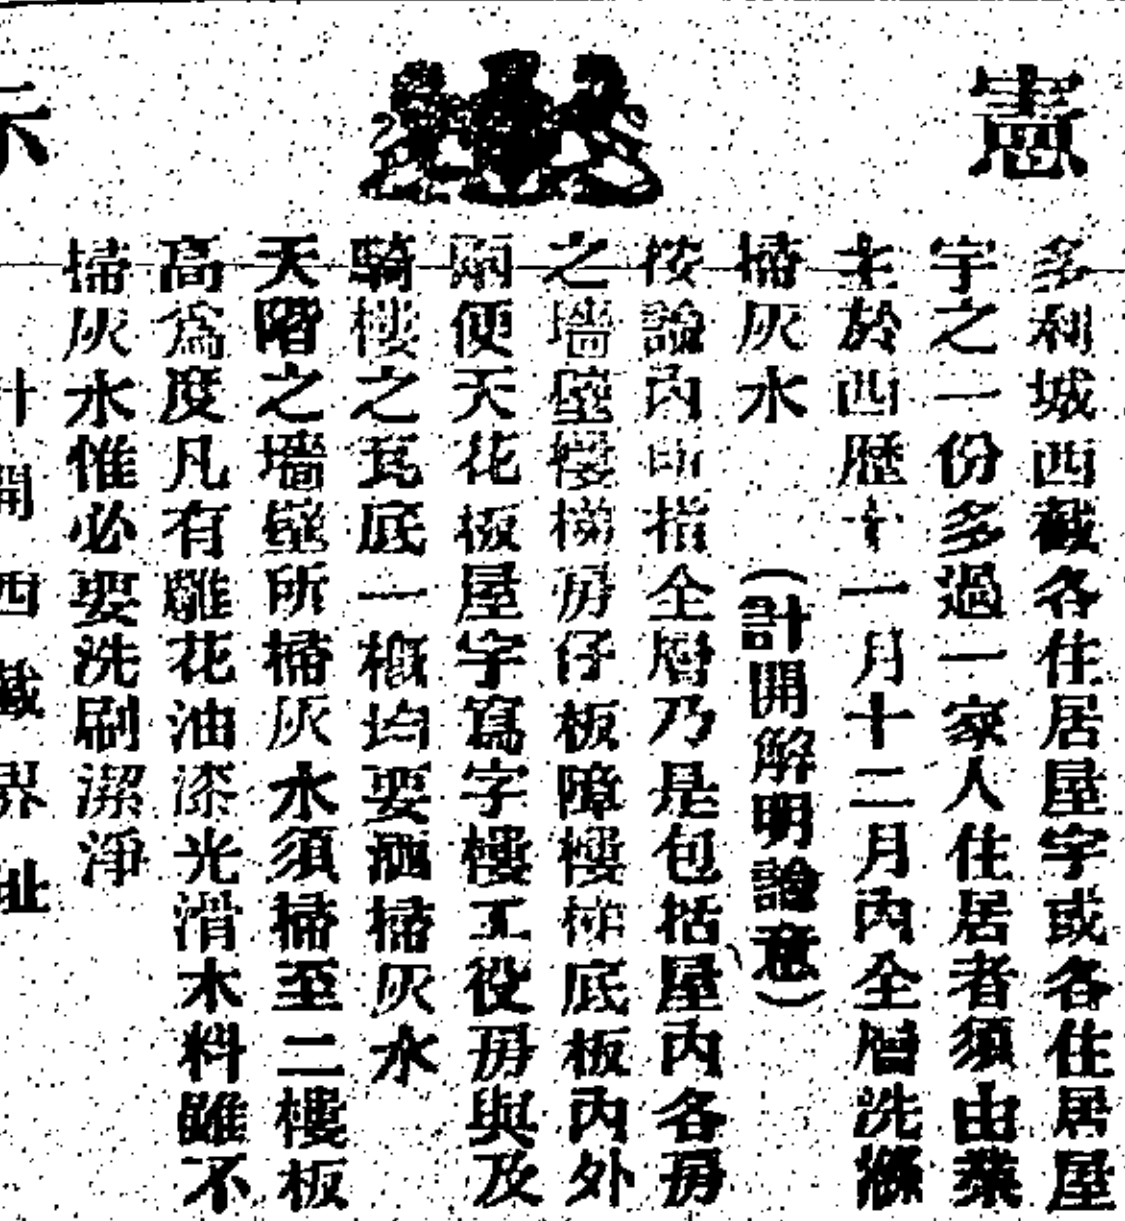 憲示
多利城西截各住居屋宇或各住居屋
宇之一份多過一家人住居者須由業
主於西歷十一月十二月內全層洗滌
掃灰水 (計開解明諭意)
按諭內所指全層乃是包括屋內各房
之墻壁樓梯房仔板障樓梯底板內外
廁便天花板屋宇寫字樓工役房與及
騎樓之瓦底一概均要洒掃灰水
天階之墻壁所掃灰水須掃至二樓板
高為度凡有雕花油漆光滑木料雖不
掃灰水惟必要洗刷潔淨
計開西截界址